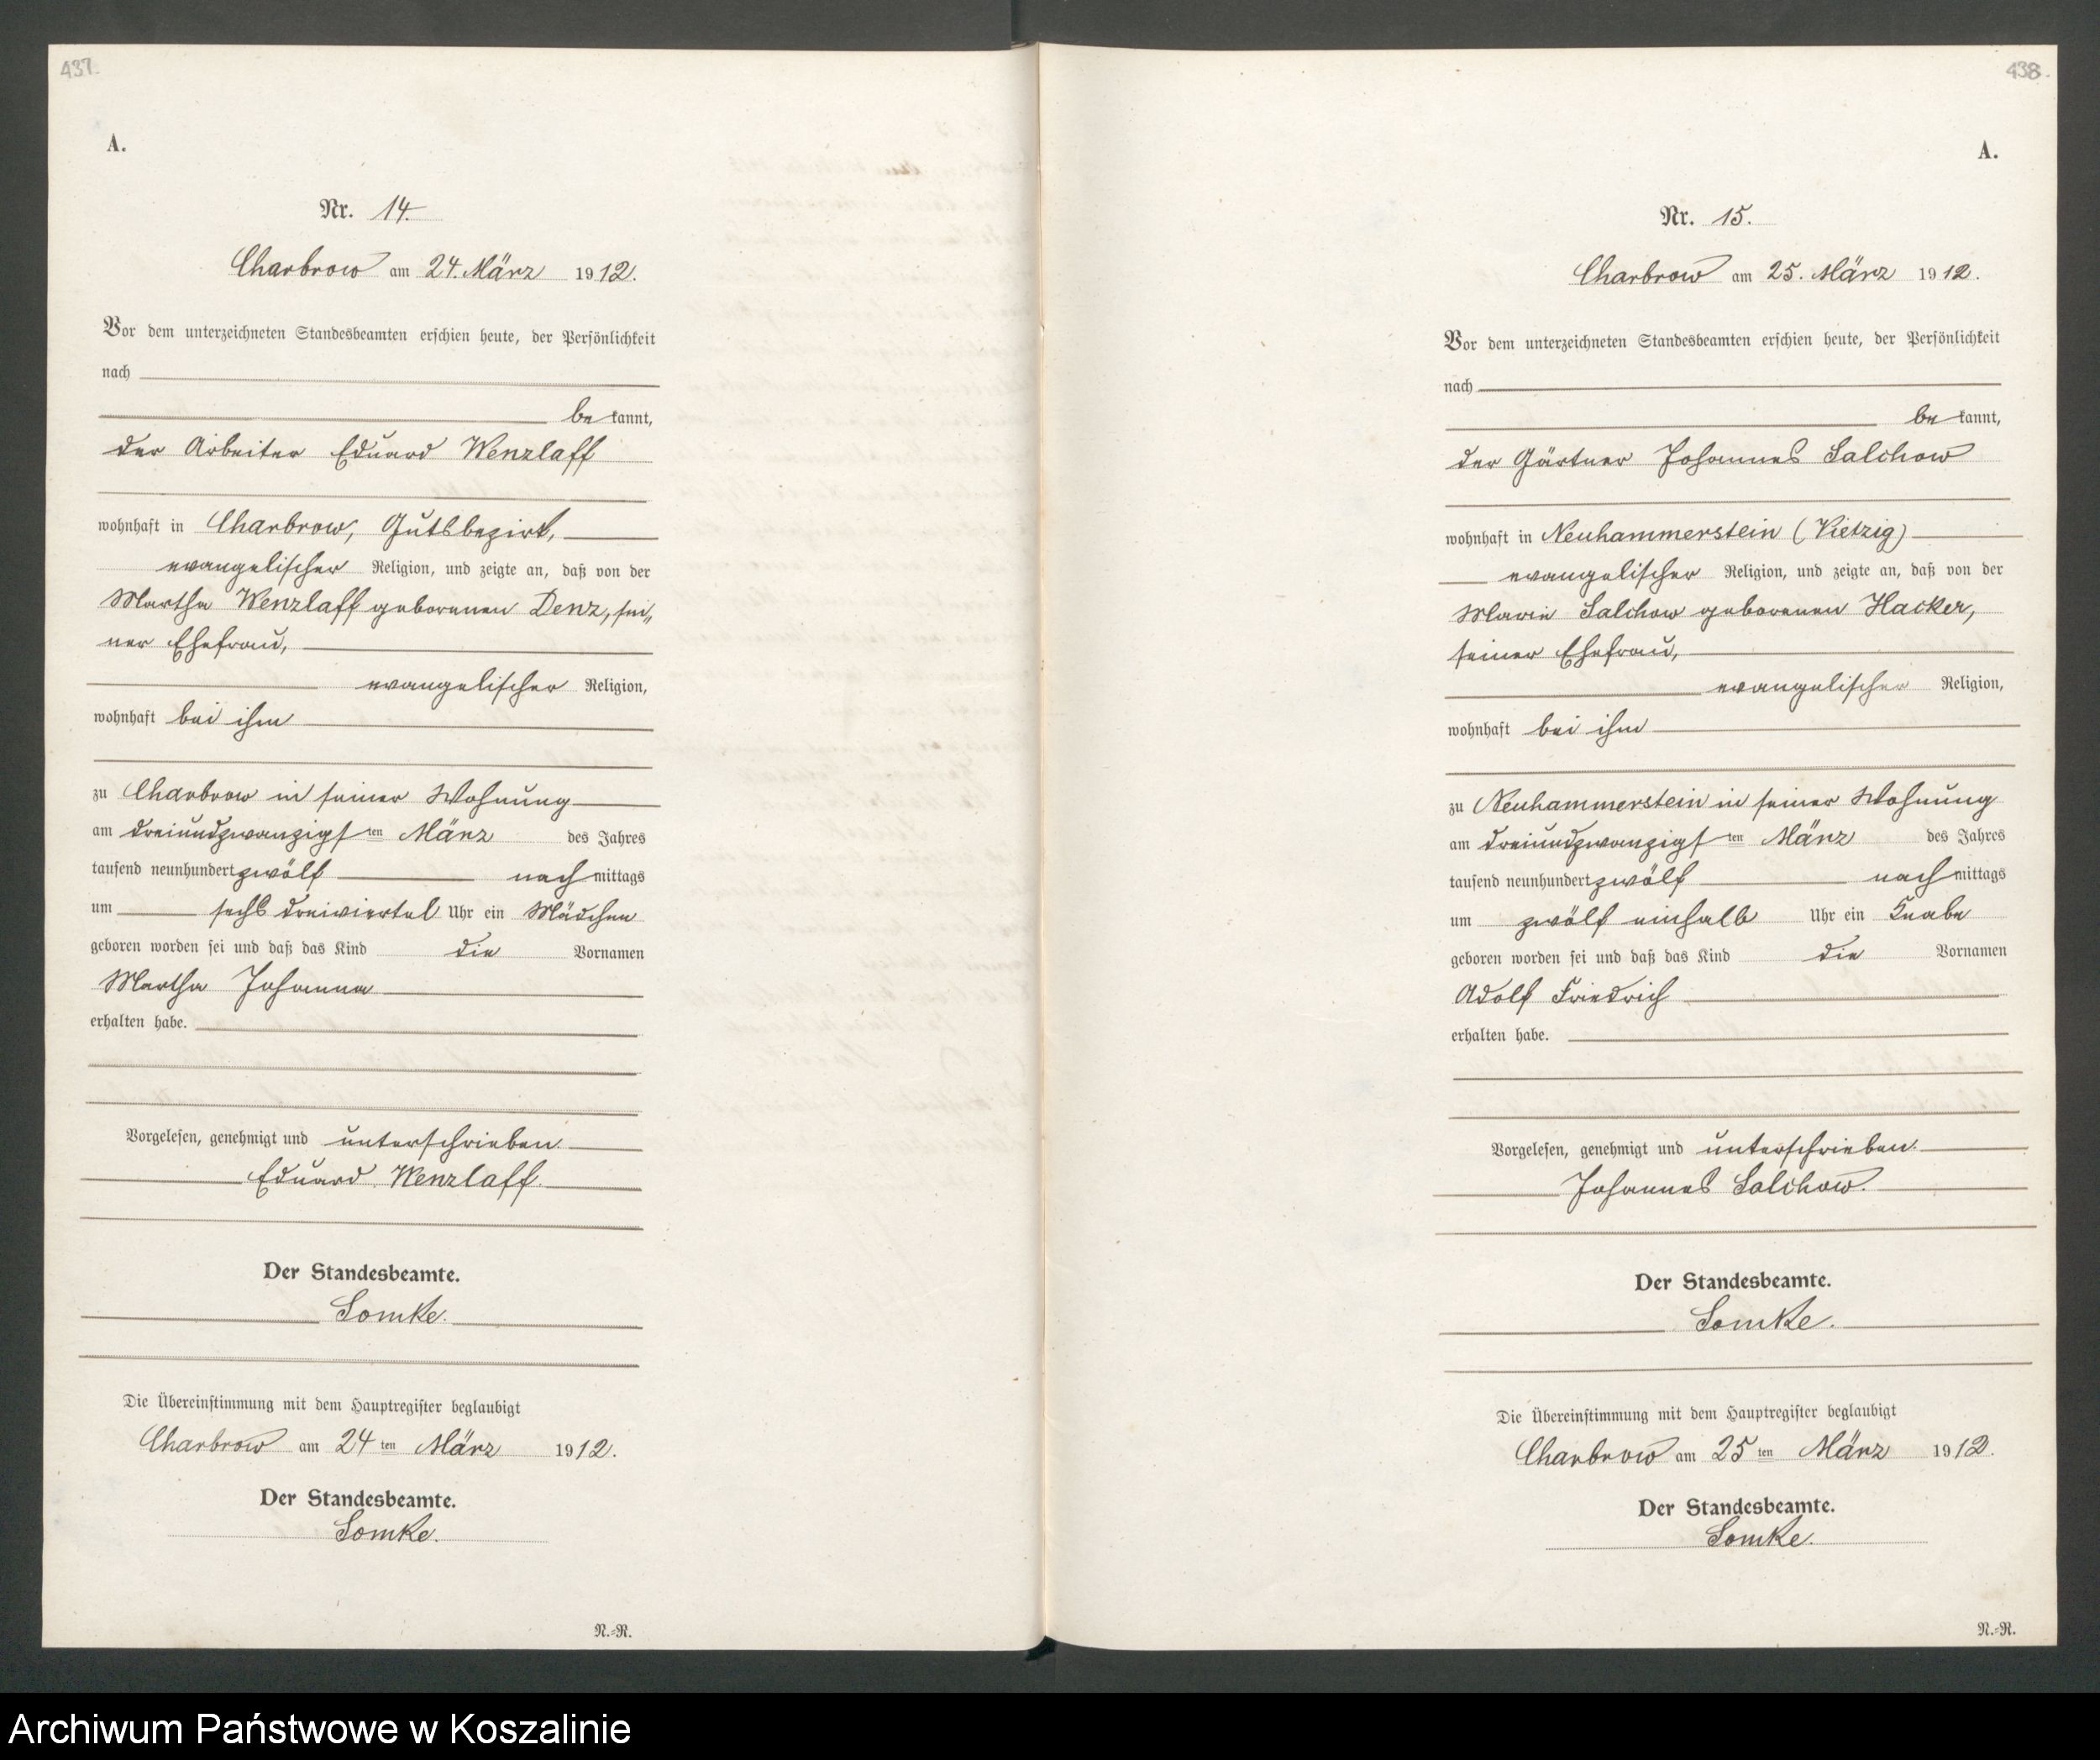 437.
A.
Nr. 14.
Charbrow am 24. März 1912.
Vor dem unterzeichneten Standesbeamten erschien heute, der Persönlichkeit
nach
be kannt,
der Arbeiter Eduard Wenzlaff
wohnhaft in Charbrow, Gutsbezirk,
evangelischer Religion, und zeigte an, daß von der
Martha Wenzlaff geborenen Denz, sei„
ner Ehefrau,
evangelischer Religion,
wohnhaft bei ihm
zu Charbrow in seiner Wohnung
am dreiundzwanzigsten März des Jahres
tausend neunhundert zwölf nachmittags
um sechs dreiviertel Uhr ein Mädchen
geboren worden sei und daß das Kind die Vornamen
Martha Johanna
erhalten habe.
Vorgelesen, genehmigt und unterschrieben.
Eduard Wenzlaff.
Der Standesbeamte.
Lomke.
Die Übereinstimmung mit dem Hauptregister beglaubigt
Charbrow am 24ten März 1912.
Der Standesbeamte.
Lomke.
N.=R.
438.
A.
Nr. 15.
Charbrow am 25. März 1912.
Vor dem unterzeichneten Standesbeamten erschien heute, der Persönlichkeit
nach
be kannt,
der Gärtner Johannes Salchow
wohnhaft in Neuhammerstein (Vietzig)
evangelischer Religion, und zeigte an, daß von der
Marie Salchow geborenen Hacker,
seiner Ehefrau,
evangelischer Religion,
wohnhaft bei ihm
zu Neuhammerstein in seiner Wohnung
am dreiundzwanzigsten März des Jahres
tausend neunhundert zwölf nachmittags
um zwölf einhalb Uhr ein Knabe
geboren worden sei und daß das Kind die Vornamen
Adolf Friedrich
erhalten habe.
Vorgelesen, genehmigt und unterschrieben.
Johannes Salchow.
Der Standesbeamte.
Lomke.
Die Übereinstimmung mit dem Hauptregister beglaubigt
Charbrow am 25ten März 1912.
Der Standesbeamte.
Lomke.
N.=R.
Archiwum Państwowe w Koszalinie